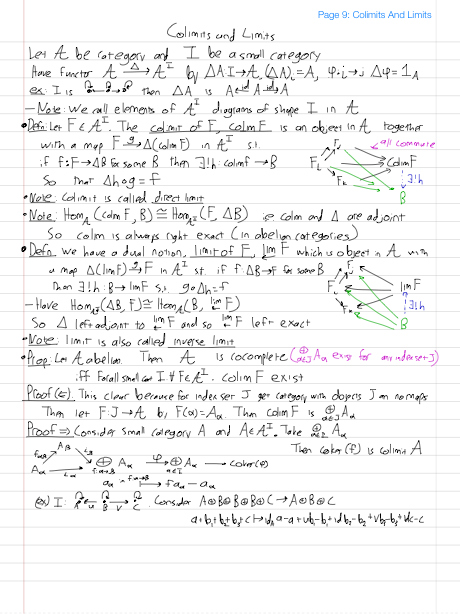 Page 9: Colimits And Limits
Colimits and Limits
Let A be category and I be a small category
Have functor A →Δ A^I by ΔA: I→A, (ΔA)ᵢ = A, φ: i→j Δφ = 1_A
ex: I is then ΔA is
– Note: We call elements of A^I diagrams of shape I in A
• Defn: Let F ∈ A^I. The colimit of F, colim F is an object in A, together
with a map F →g Δ(colim F) in A^I s.t.
all commute
if f: F→ΔB for some B then ∃!h: colim F → B
So that Δh∘g = f
Fᵢ Fⱼ Fₖ Colim F ∃!h B
• Note: Colimit is called direct limit
• Note: Hom_A(colim F, B) ≅ Hom_{A^I}(F, ΔB) ie colim and Δ are adjoint
So colim is always right exact (in abelian categories)
• Defn: We have a dual notion, limit of F, lim F which is object in A with
a map Δ(lim F) →g F in A^I s.t. if f: ΔB→F for some B
then ∃!h: B→ lim F s.t. g∘Δh = f
Fᵢ Fⱼ Fₖ lim F ∃!h B
– Have Hom_{A^I}(ΔB, F) ≅ Hom_A(B, lim F)
So Δ left adjoint to lim F and so lim F left exact
• Note: limit is also called inverse limit
• Prop: Let A abelian. Then A is cocomplete (⊕_{α∈J} A_α exists for any index set J)
iff for all small cat I ∀F∈A^I, colim F exist
Proof (⇐) This clear because for index set J get category with objects J and no maps
Then let F: J→A by F(α) = A_α. Then colim F is ⊕_{α∈J} A_α
Proof ⇒ Consider small category A and A∈A^I. Take ⊕ A_α
Then coker(φ) is colimit A
⊕_{f:α→β} A_α →φ ⊕ A_α → coker(φ)
a_α ↦ f a_α − a_α
ex) I: A →u B →v C. Consider A⊕B⊕B⊕B⊕C → A⊕B⊕C